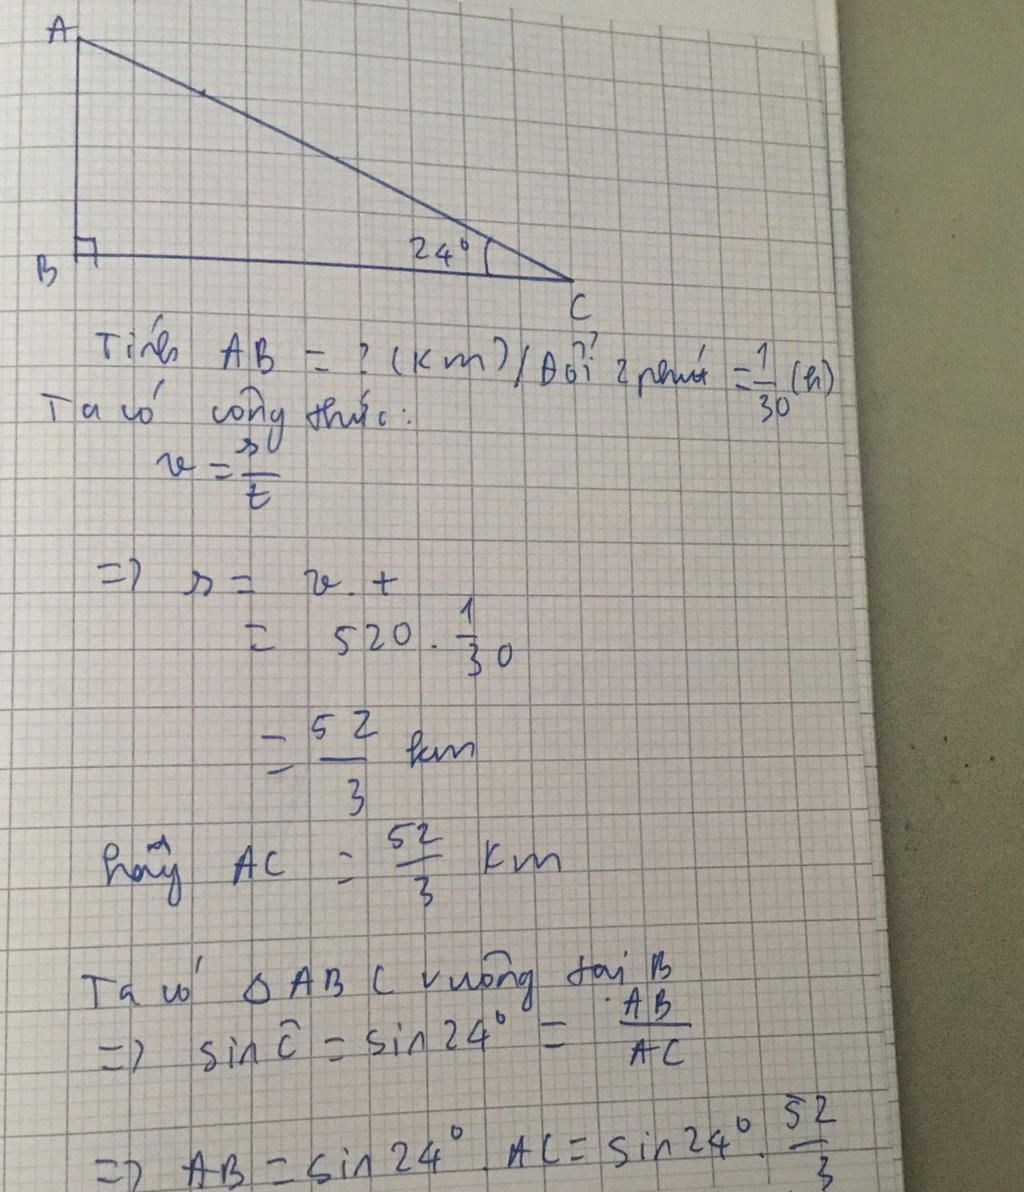 A
B
24°
C
Tính AB = ? (km) / Đổi 2 phút = 1/30 (h)
Ta có công thức:
v = s/t
=> s = v . t
= 520 . 1/30
= 52/3 km
hay AC = 52/3 km
Ta có Δ ABC vuông tại B
=> sin Ĉ = sin 24° = AB/AC
=> AB = sin 24° . AC = sin 24° . 52/3